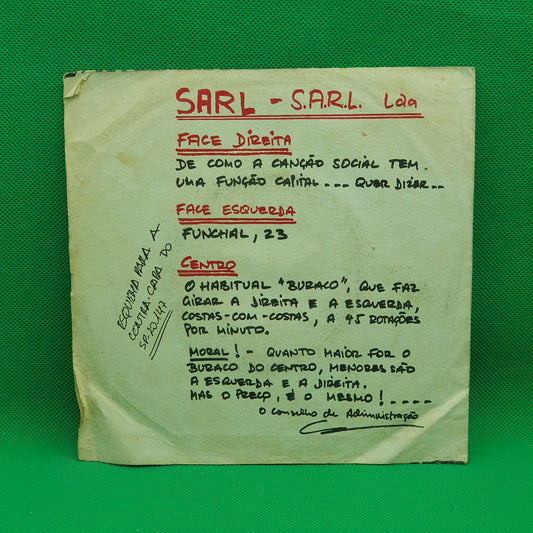 SARL - S.A.R.L. Lda
FACE DIREITA
DE COMO A CANÇÃO SOCIAL TEM
UMA FUNÇÃO CAPITAL --- QUER DIZER--
FACE ESQUERDA
FUNCHAL, 23
CENTRO
O HABITUAL "BURACO", QUE FAZ
GIRAR A DIREITA E A ESQUERDA,
COSTAS-COM-COSTAS, A 45 ROTAÇÕES
POR MINUTO.
MORAL! - QUANTO MAIOR FOR O
BURACO DO CENTRO, MENORES SÃO
A ESQUERDA E A DIREITA.
MAS O PREÇO, É O MESMO! ----
O Conselho de Administração
ESQUEMA PARA A
CONTRA-CAPA DO
SP.20.147